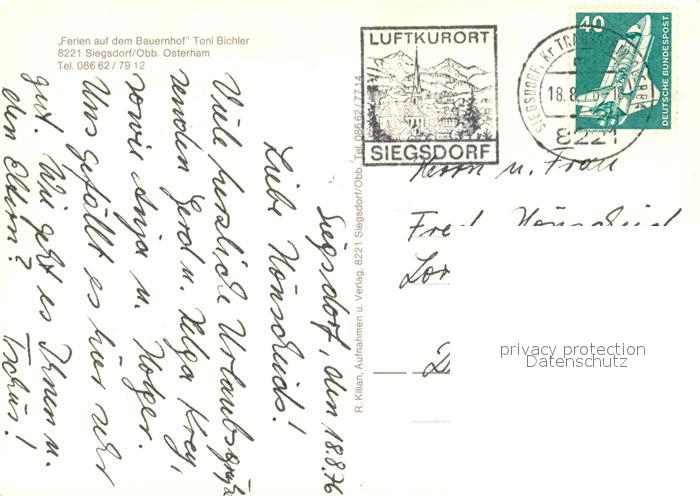 „Ferien auf dem Bauernhof" Toni Bichler
8221 Siegsdorf/Obb. Osterham
Tel. 086 62 / 79 12
R. Kilian, Aufnahmen u. Verlag, 8221 Siegsdorf/Obb. Tel. 086 62/77 14
Siegsdorf, den 18.8.76
Liebe Nönscheids!
Viele herzliche Urlaubsgrüße
senden Gerd u. Helga Krey,
sowie Anja u. Holger.
Uns gefällt es hier sehr
gut. Wie geht es Ihnen u.
den Eltern? Tschüs!
LUFTKURORT
SIEGSDORF
SIEGSDORF, Kr TRAUNSTEIN
18.8.
8221
40
DEUTSCHE BUNDESPOST
Herrn u. Frau
Fred Nönscheid
privacy protection
Datenschutz